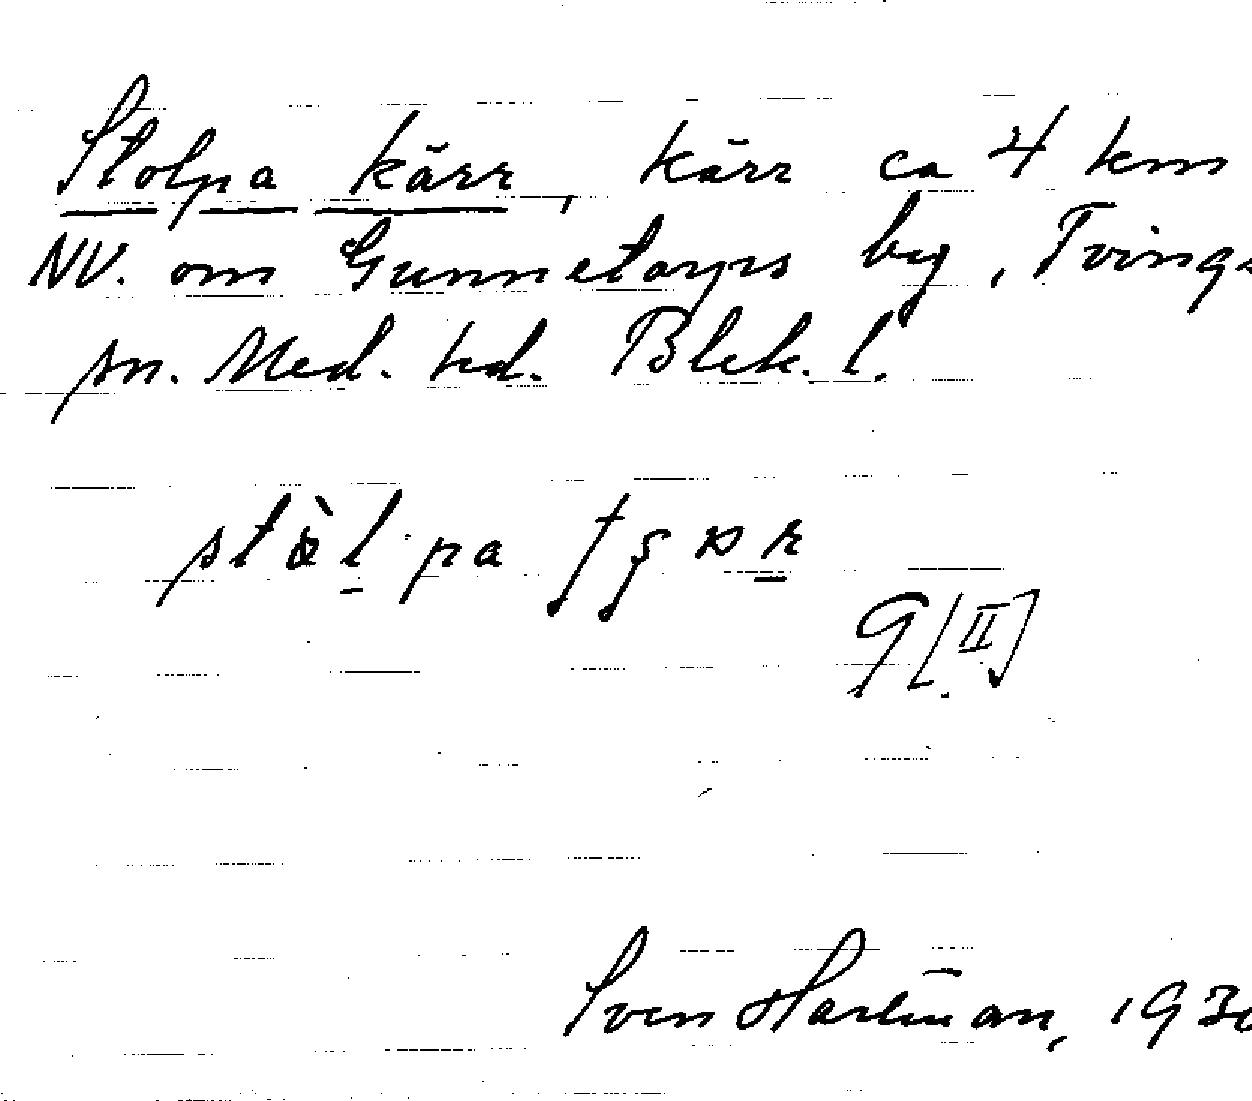 Stolpa kärr, kärr ca 4 km
NV. om Gunnetorps by, Tvings
sn. Med. hd. Blek. l.
9 [II]
Sven Hartman, 1930